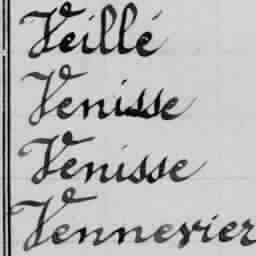 Veillé
Venisse
Venisse
Vennevier